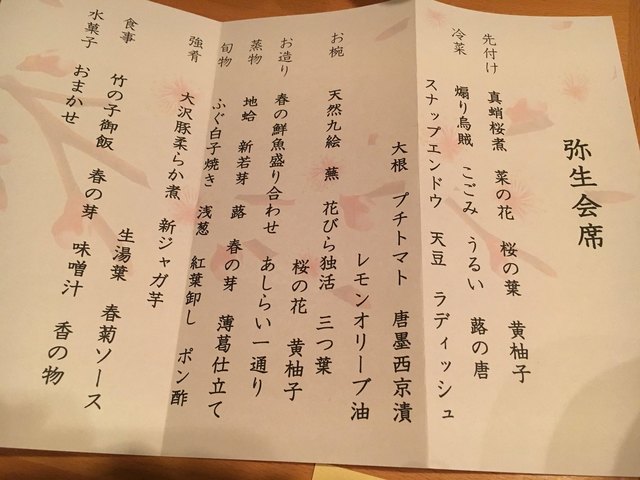 弥生会席
先付け 真蛸桜煮 菜の花 桜の葉 黄柚子
冷菜 煽り烏賊 こごみ うるい 蕗の唐
スナップエンドウ 天豆 ラディッシュ
大根 プチトマト 唐墨西京漬
レモンオリーブ油
お椀 天然九絵 蕪 花びら独活 三つ葉
桜の花 黄柚子
お造り 春の鮮魚盛り合わせ あしらい一通り
蒸物 地蛤 新若芽 蕗 春の芽 薄葛仕立て
旬物 ふぐ白子焼き 浅葱 紅葉卸し ポン酢
強肴 大沢豚柔らか煮 新ジャガ芋
生湯葉 春菊ソース
食事 竹の子御飯 春の芽 味噌汁 香の物
水菓子 おまかせ